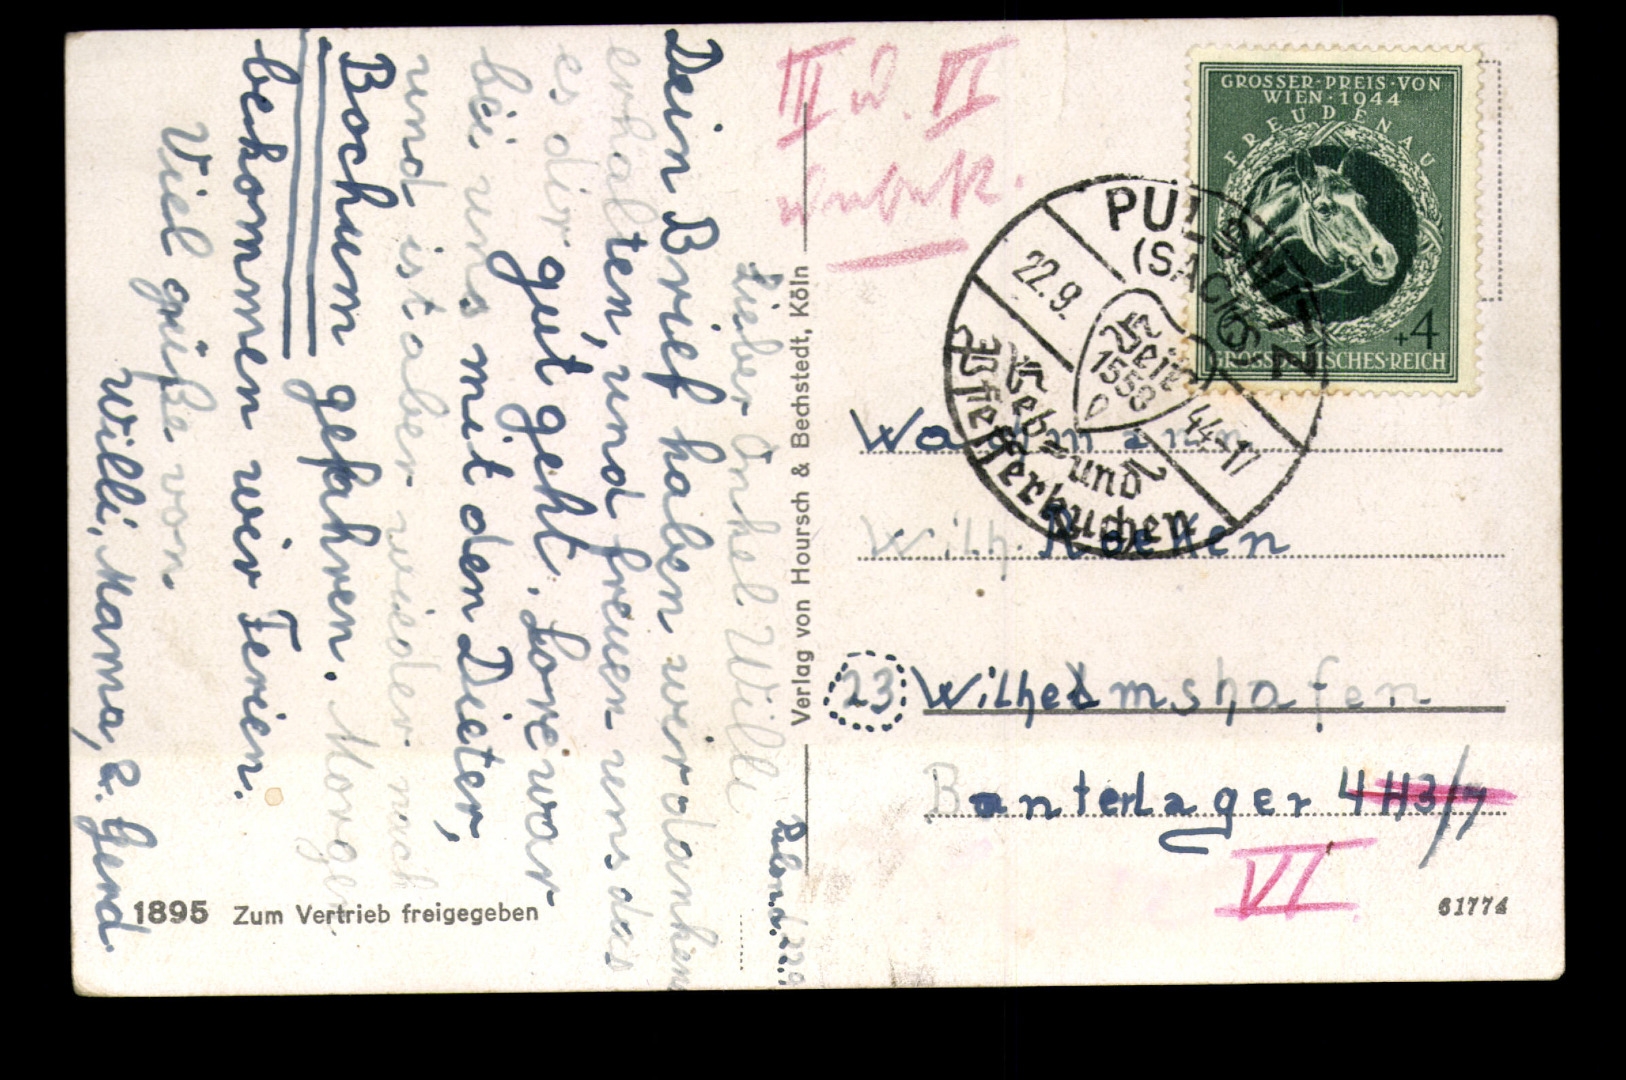 Pulsnitz, d. 22.9.
Lieber Onkel Willi
Dein Brief haben wir dankend
erhalten, und freuen uns das
es dir gut geht. Lore war
bei uns mit den Dieter,
und ist aber wieder nach
Bochum gefahren. Morgen
bekommen wir Ferien.
Viel grüße von
Willi, Mama, &. Gerd.
1895 Zum Vertrieb freigegeben
Verlag von Hoursch & Bechstedt, Köln
III u. VI
unbek.
GROSSER·PREIS·VON
WIEN·1944
FREUDENAU
+4
GROSSDEUTSCHES·REICH
PULSNITZ
(SACHSEN)
22.9. 44.-17
Seit
1558
Web- und
Pfefferkuchen
Wilh.
23 Wilhelmshafen
Banterlager 4 H3/7
VI
61774